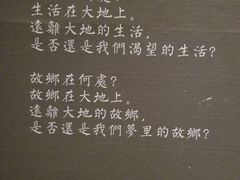 生活在大地上。
遠離大地的生活，
是否還是我們渴望的生活？
故鄉在何處？
故鄉在大地上。
遠離大地的故鄉，
是否還是我們夢里的故鄉？